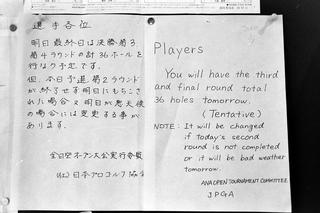 選手各位
明日最終日は決勝第3、
第4ラウンドの計36ホールを
行なう予定です。
但、本日予選第2ラウンド
が終らせず明日にもちこさ
れた場合又明日が悪天候
の場合には変更する事が
あります。
全日空オープン大会実行委員
(社)日本プロゴルフ協会
Players
You will have the third
and final round total
36 holes tomorrow.
(Tentative)
NOTE: It will be changed
if Today's second
round is not completed
or it will be bad weather
tomorrow.
ANA OPEN TOURNAMENT COMMITTEE
JPGA